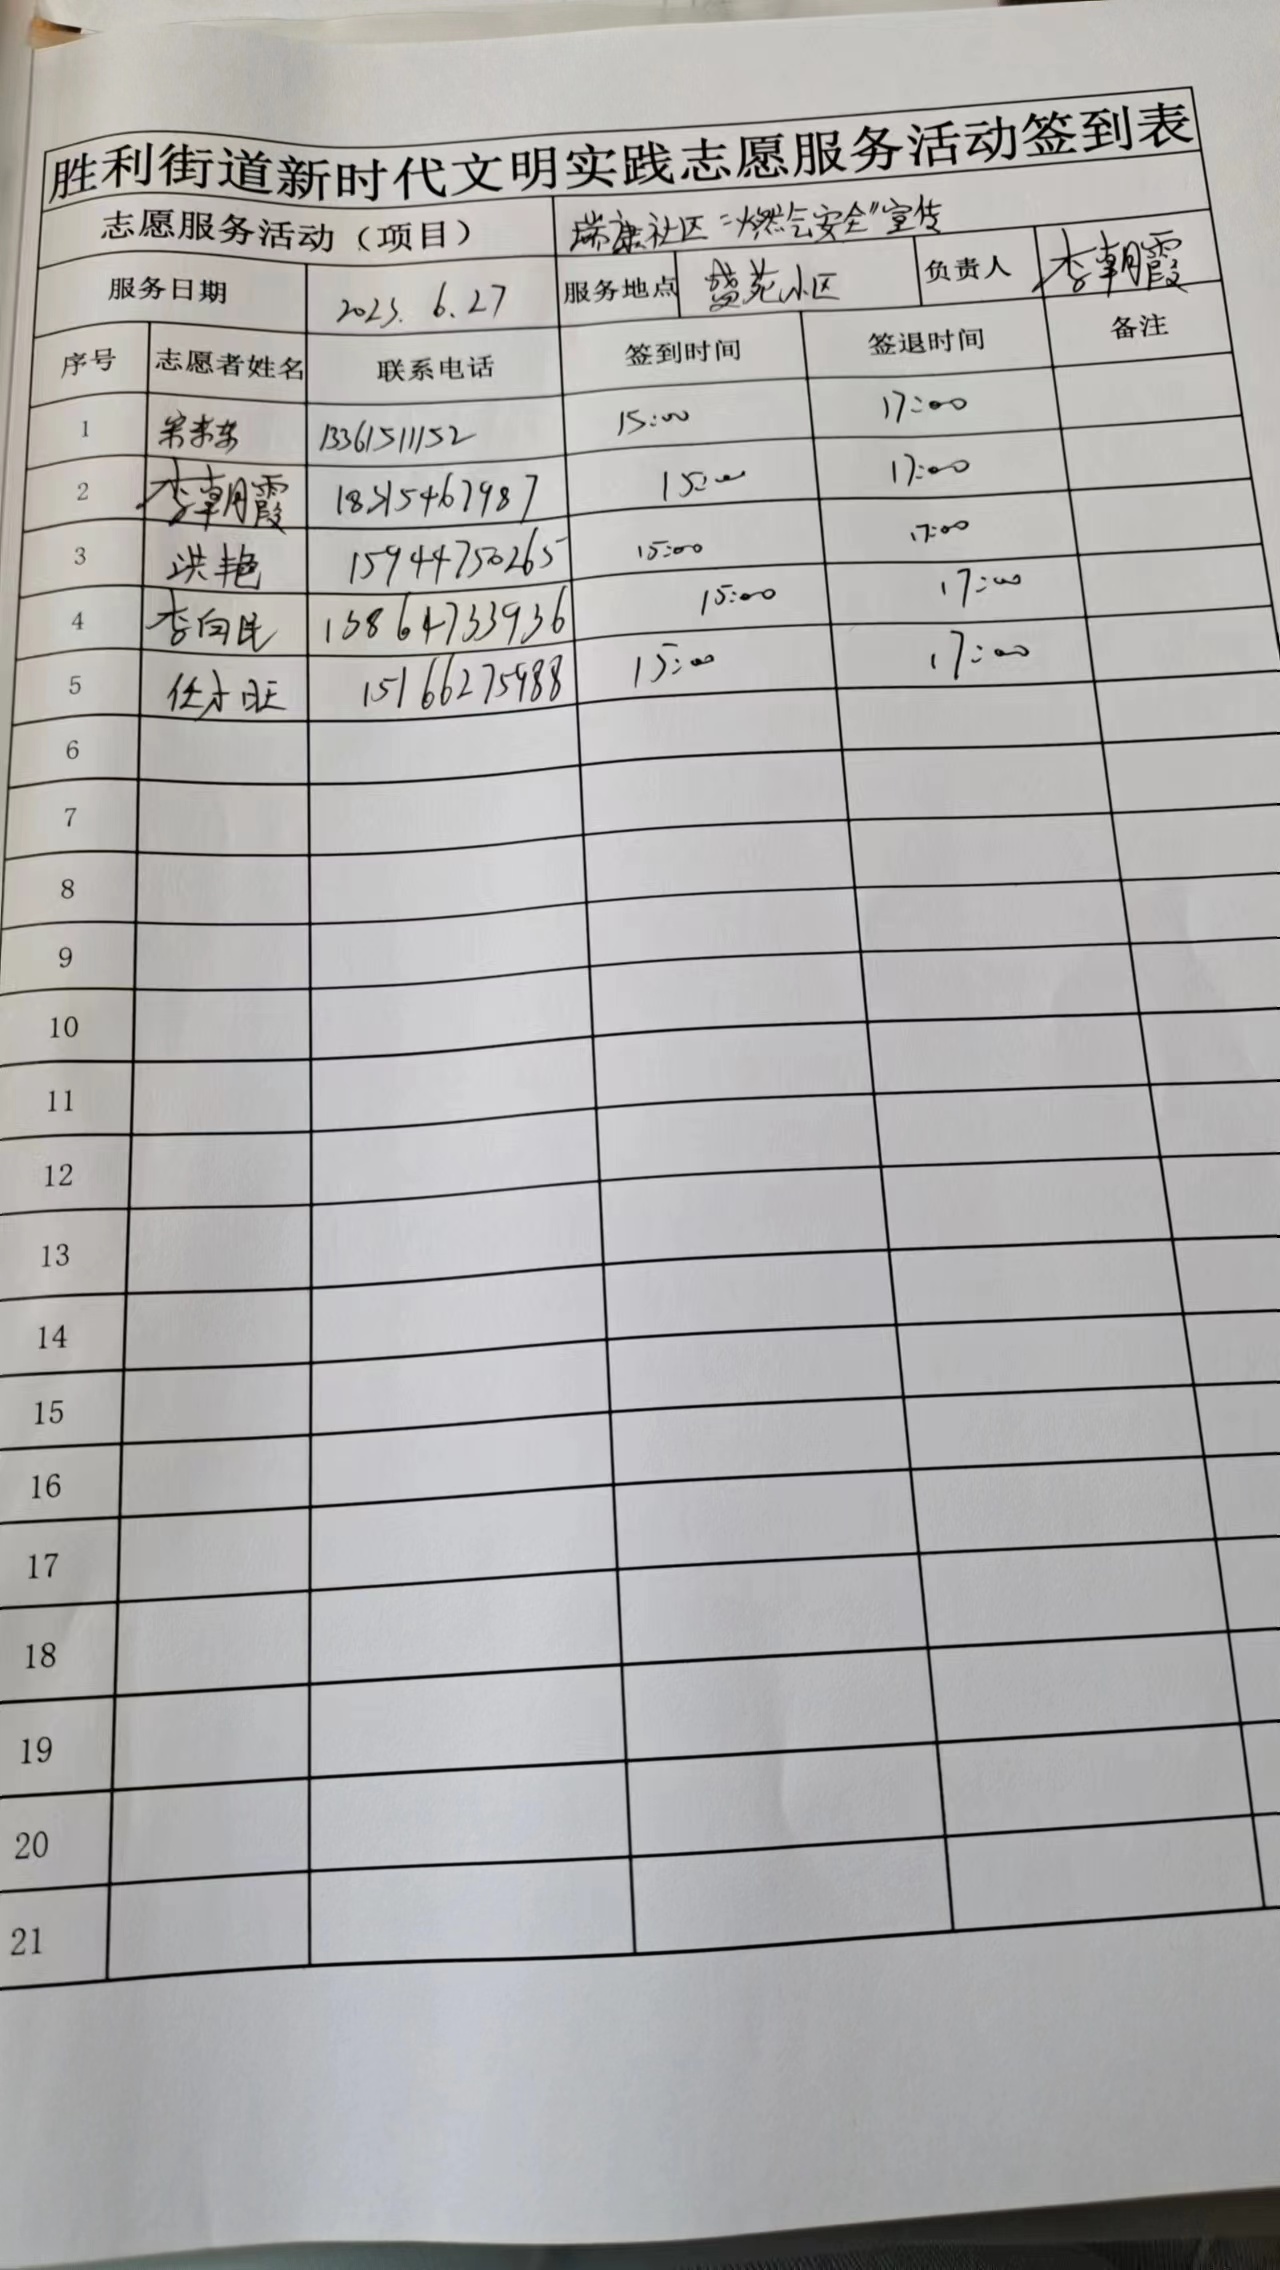 胜利街道新时代文明实践志愿服务活动签到表
志愿服务活动（项目） 瑞康社区“燃气安全”宣传
服务日期 2023. 6.27 服务地点 盛苑小区 负责人 李朝霞
序号 志愿者姓名 联系电话 签到时间 签退时间 备注
1 13361511152 15:00 17:00
2 李朝霞 15:00 17:00
3 洪艳 15944750265 15:00 17:00
4 李向民 13864733936 15:00 17:00
5 15166275988 15:00 17:00
6
7
8
9
10
11
12
13
14
15
16
17
18
19
20
21